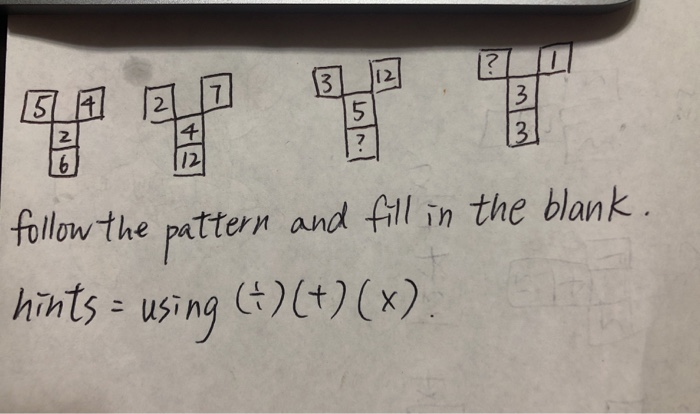 3 12 ? 1
5 4 2 7 5 3
2 4 ? 3
6 12
follow the pattern and fill in the blank.
hints = using (÷)(+)(×).